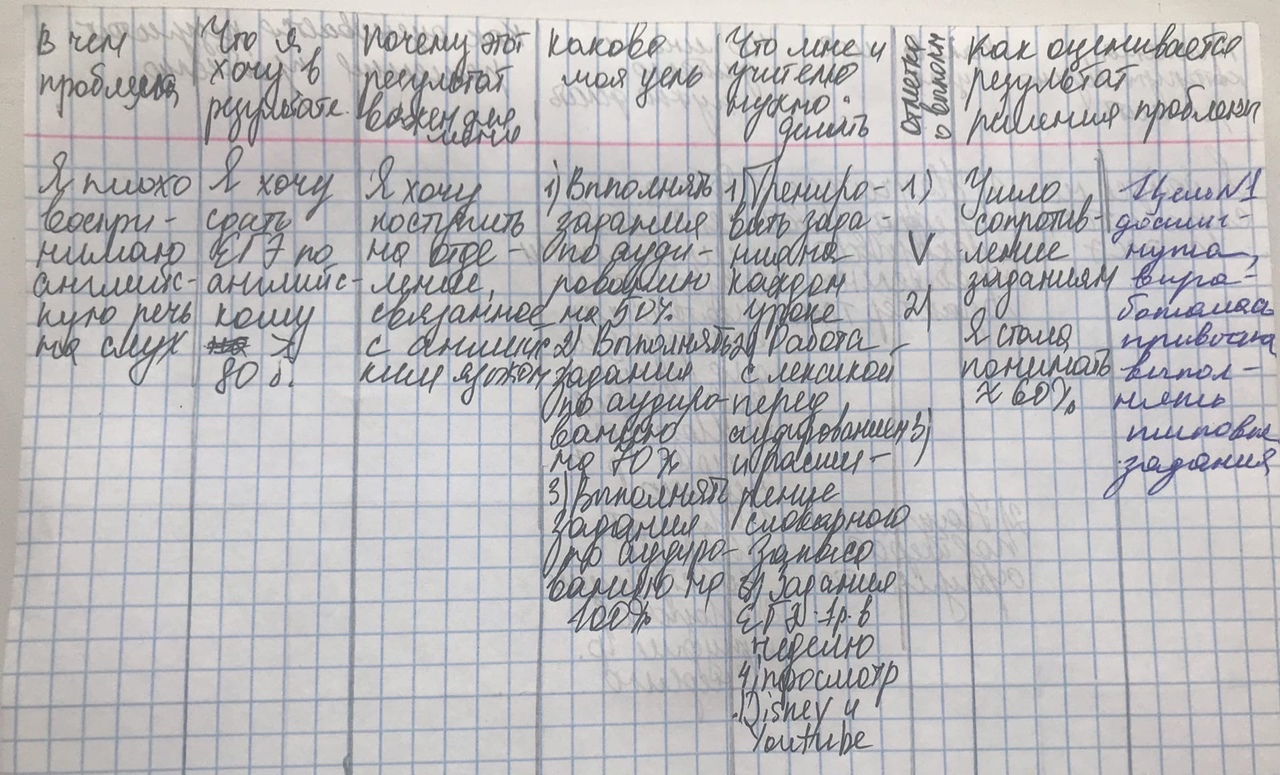 В чем
проблема
Что я
хочу в
результате.
Почему этот
результат
важен для
меня
Какова
моя цель
Что мне и
учителю
нужно
делать
Отметка
о выполн
Как оценивается
результат
решения проблемы
Я плохо
воспри-
нимаю
английс-
кую речь
на слух
Я хочу
сдать
ЕГЭ по
английс-
кому
>
80 б.
Я хочу
поступить
на отде-
ление,
связанное
с английс
ким языком
1) Выполнять
задания
по ауди-
рованию
на 50%
2) Выполнять
задания
по аудиро-
ванию
на 70%
3) Выполнять
задания
по аудиро-
ванию на
100%
1) Трениро-
вать зада-
ния на
каждом
уроке
2) Работа
с лексикой
перед
аудированием
и расши-
рение
словарного
запаса
3) Задания
ЕГЭ 1р. в
неделю
4) просмотр
Disney и
Youtube
1)
V
2)
-
3)
Ушло
сопротив-
ление
заданиям
Я стала
понимать
≈ 60%
Цель №1
достиг-
нута,
выра-
боталась
привычка
выпол-
нять
типовые
задания